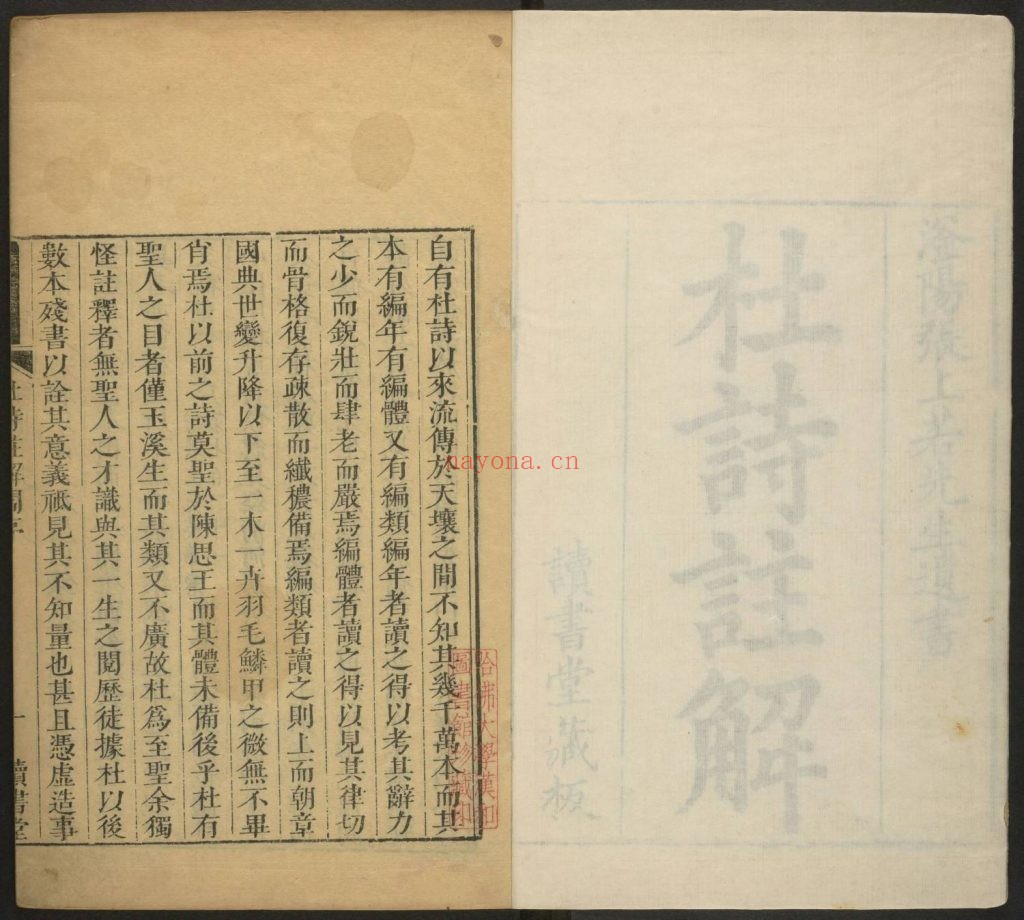 滏陽張上若先生遺書
杜詩註解
讀書堂藏板
自有杜詩以來流傳於天壤之間不知其幾千萬本而其
本有編年有編體又有編類編年者讀之得以考其辭力
之少而銳壯而肆老而嚴焉編體者讀之得以見其律切
而骨格復存疎散而纖穠備焉編類者讀之則上而朝章
國典世變升降以下至一木一卉羽毛鱗甲之微無不畢
肖焉杜以前之詩莫聖於陳思王而其體未備後乎杜有
聖人之目者僅玉溪生而其類又不廣故杜爲至聖余獨
怪註釋者無聖人之才識與其一生之閱歷徒據杜以後
數本殘書以詮其意義祗見其不知量也甚且憑虛造事
杜詩註解 一 讀書堂
哈佛大學漢和
圖書館珍藏印
nayona.cn